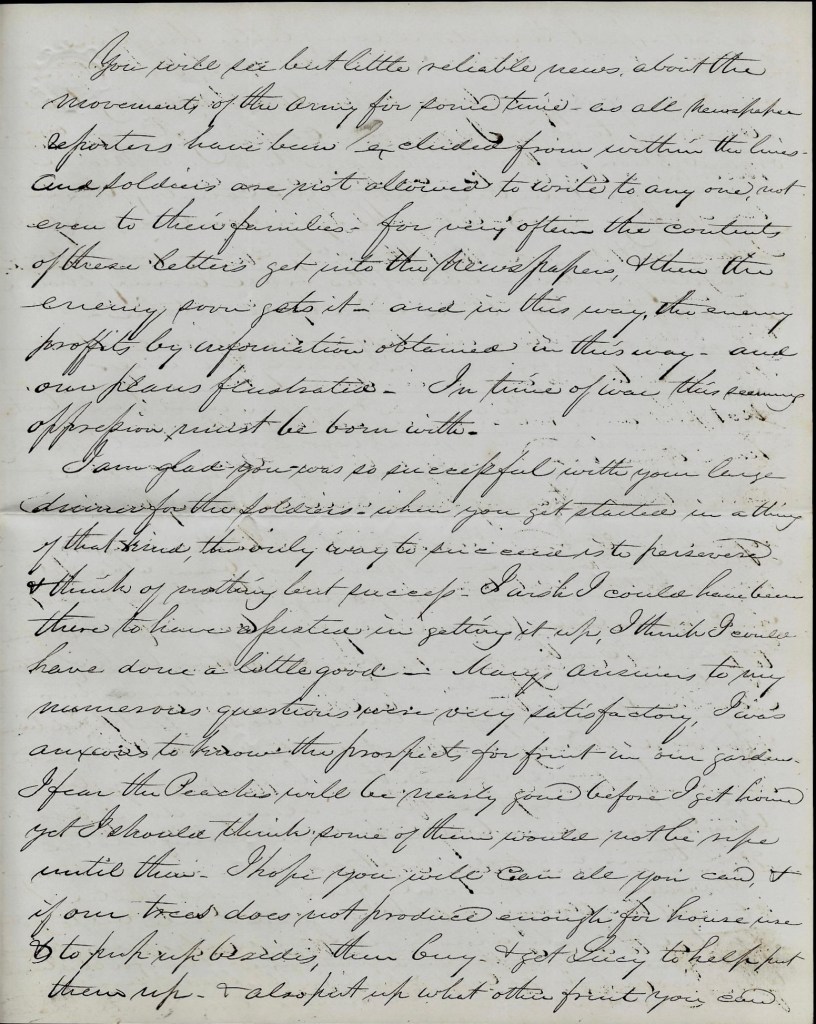 You will see but little reliable news, about the
movements of the Army for some time - as all Newspaper
reporters have been excluded from within the lines -
and soldiers are not allowed to write to any one, not
even to their families - for very often the contents
of these letters get into the Newspapers, & then the
enemy soon gets it - and in this way, the enemy
profits by information obtained in this way - and
our plans frustrated - In time of war this seeming
oppression must be born with -
I am glad you was so successful with your large
dinner for the soldiers - when you get started in a thing
of that kind, the only way to succeed is to persevere
& think of nothing but success - I wish I could have been
there to have assisted in getting it up, I think I could
have done a little good - Mary's answers to my
numerous questions were very satisfactory, I was
anxious to know the prospects for fruit in our garden -
I fear the Peaches will be nearly gone before I get home
yet I should think some of them would not be ripe
until then - I hope you will can all you can, &
if our trees does not produce enough for house use
& to put up besides, then buy - & get Lucy to help put
them up - & also put up what other fruit you can